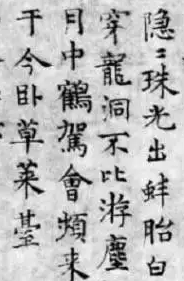 隐〻珠光出蚌胎白
穿龍洞不比游塵
月中鶴駕會頻来
于今卧草莱臺